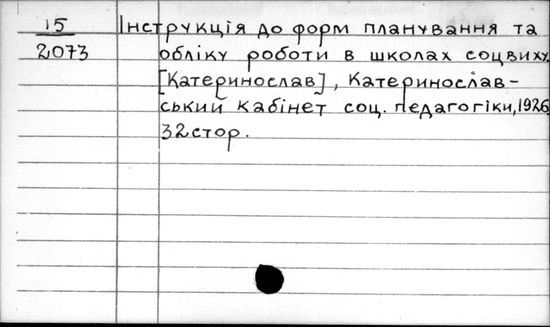 15 Інструкція до форм планування та
2073 обліку роботи в школах соцвиху.
[Катеринослав], Катеринослав-
ський кабінет соц. педагогіки, 1926
32 стор.